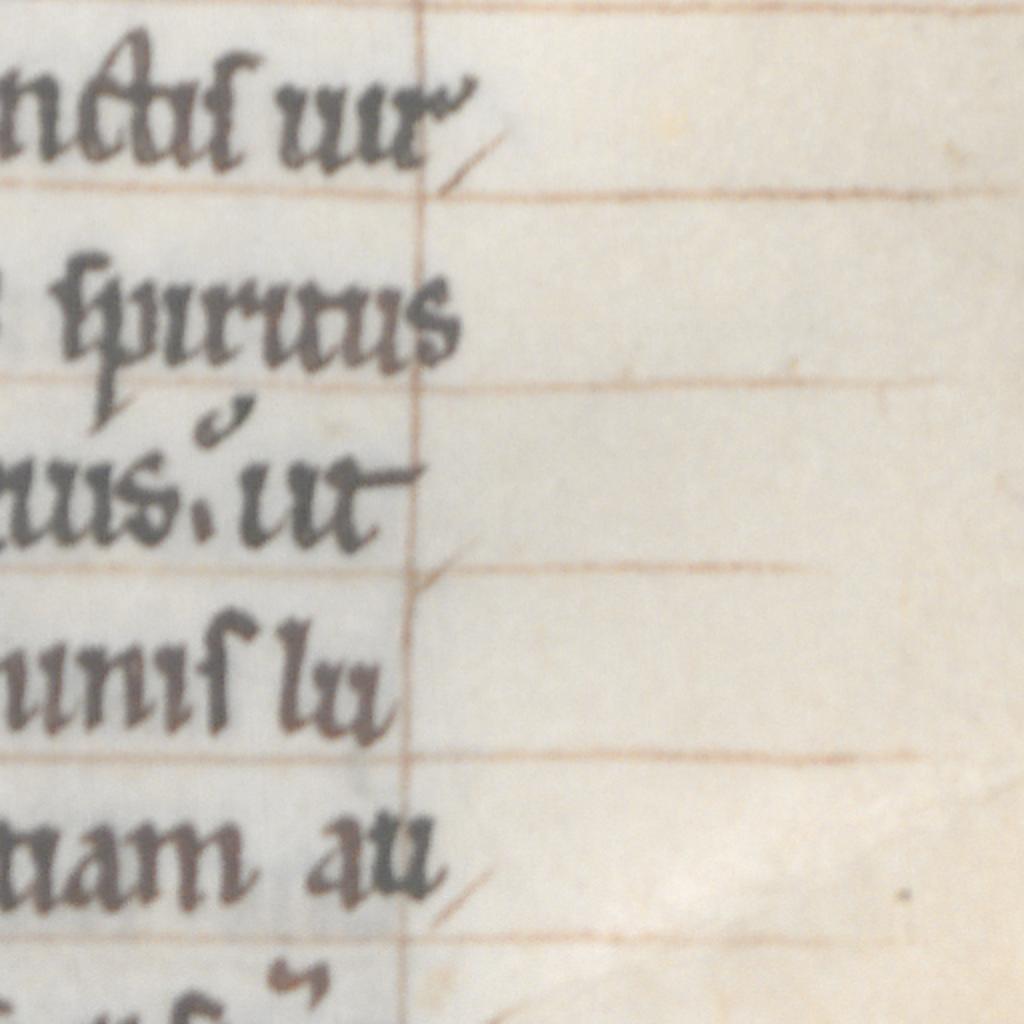 nctis uir
spiritus
tius. ut
unis lu
tiam au